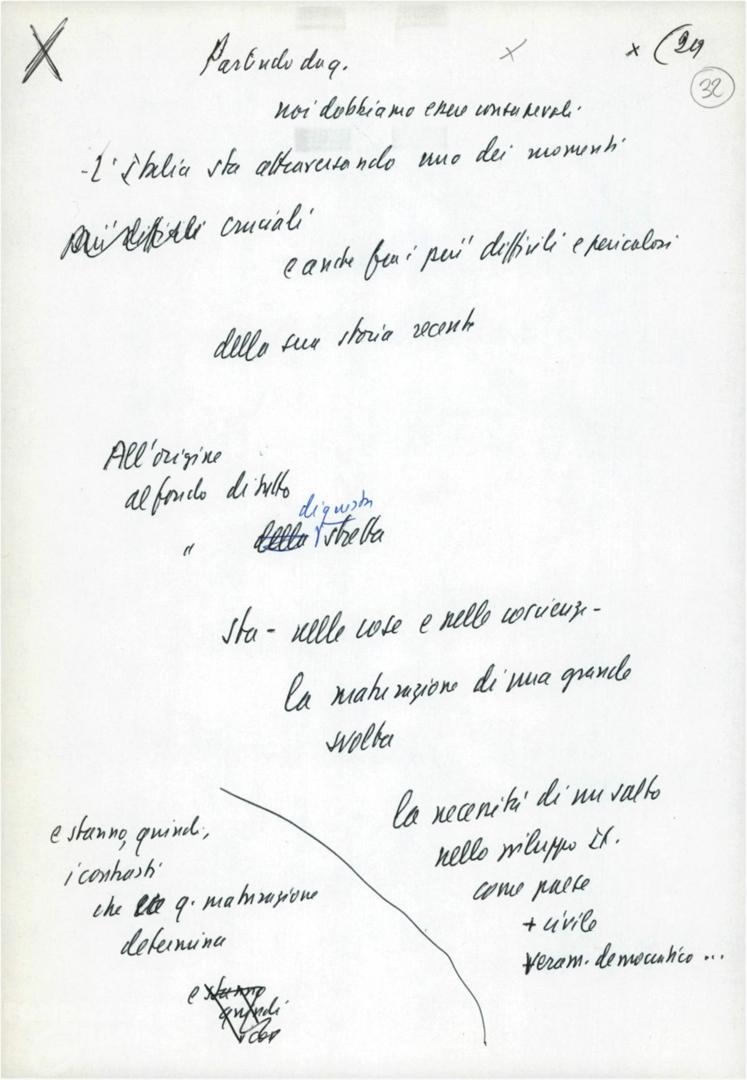 X
x
x (29
32
Partendo da q.
noi dobbiamo essere consapevoli
- L'Italia sta attraversando uno dei momenti
più difficili cruciali
e anche fra i più difficili e pericolosi
della sua storia recente
All'origine
al fondo di tutto
di questa
" della stretta
sta - nelle cose e nelle coscienze -
la maturazione di una grande
svolta
la necessità di un salto
nello sviluppo it.
come paese
+ civile
veram. democratico ...
e stanno, quindi,
i contrasti
che q. maturazione
determina
e stanno
quindi
i con